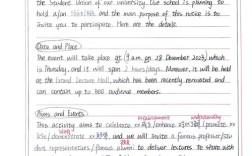 the Student Union of our university. Our school is planning to
hold a/an and the main purpose of this notice is to
invite you to participate. Here are the details.
Date and Place
The event will take place at 9 a.m. on 28 December 2023, which
is Thursday, and it will span 2 hours/days. Moreover, it will be held
at the Grand Lecture Hall, which has been recently renovated and
can contain up to 800 audience members.
and Events
This activity aims to celebrate / enhance / promote
life / demonstrate and we will invite a famous professor/stu-
dent representatives/famous to deliver lectures to share with